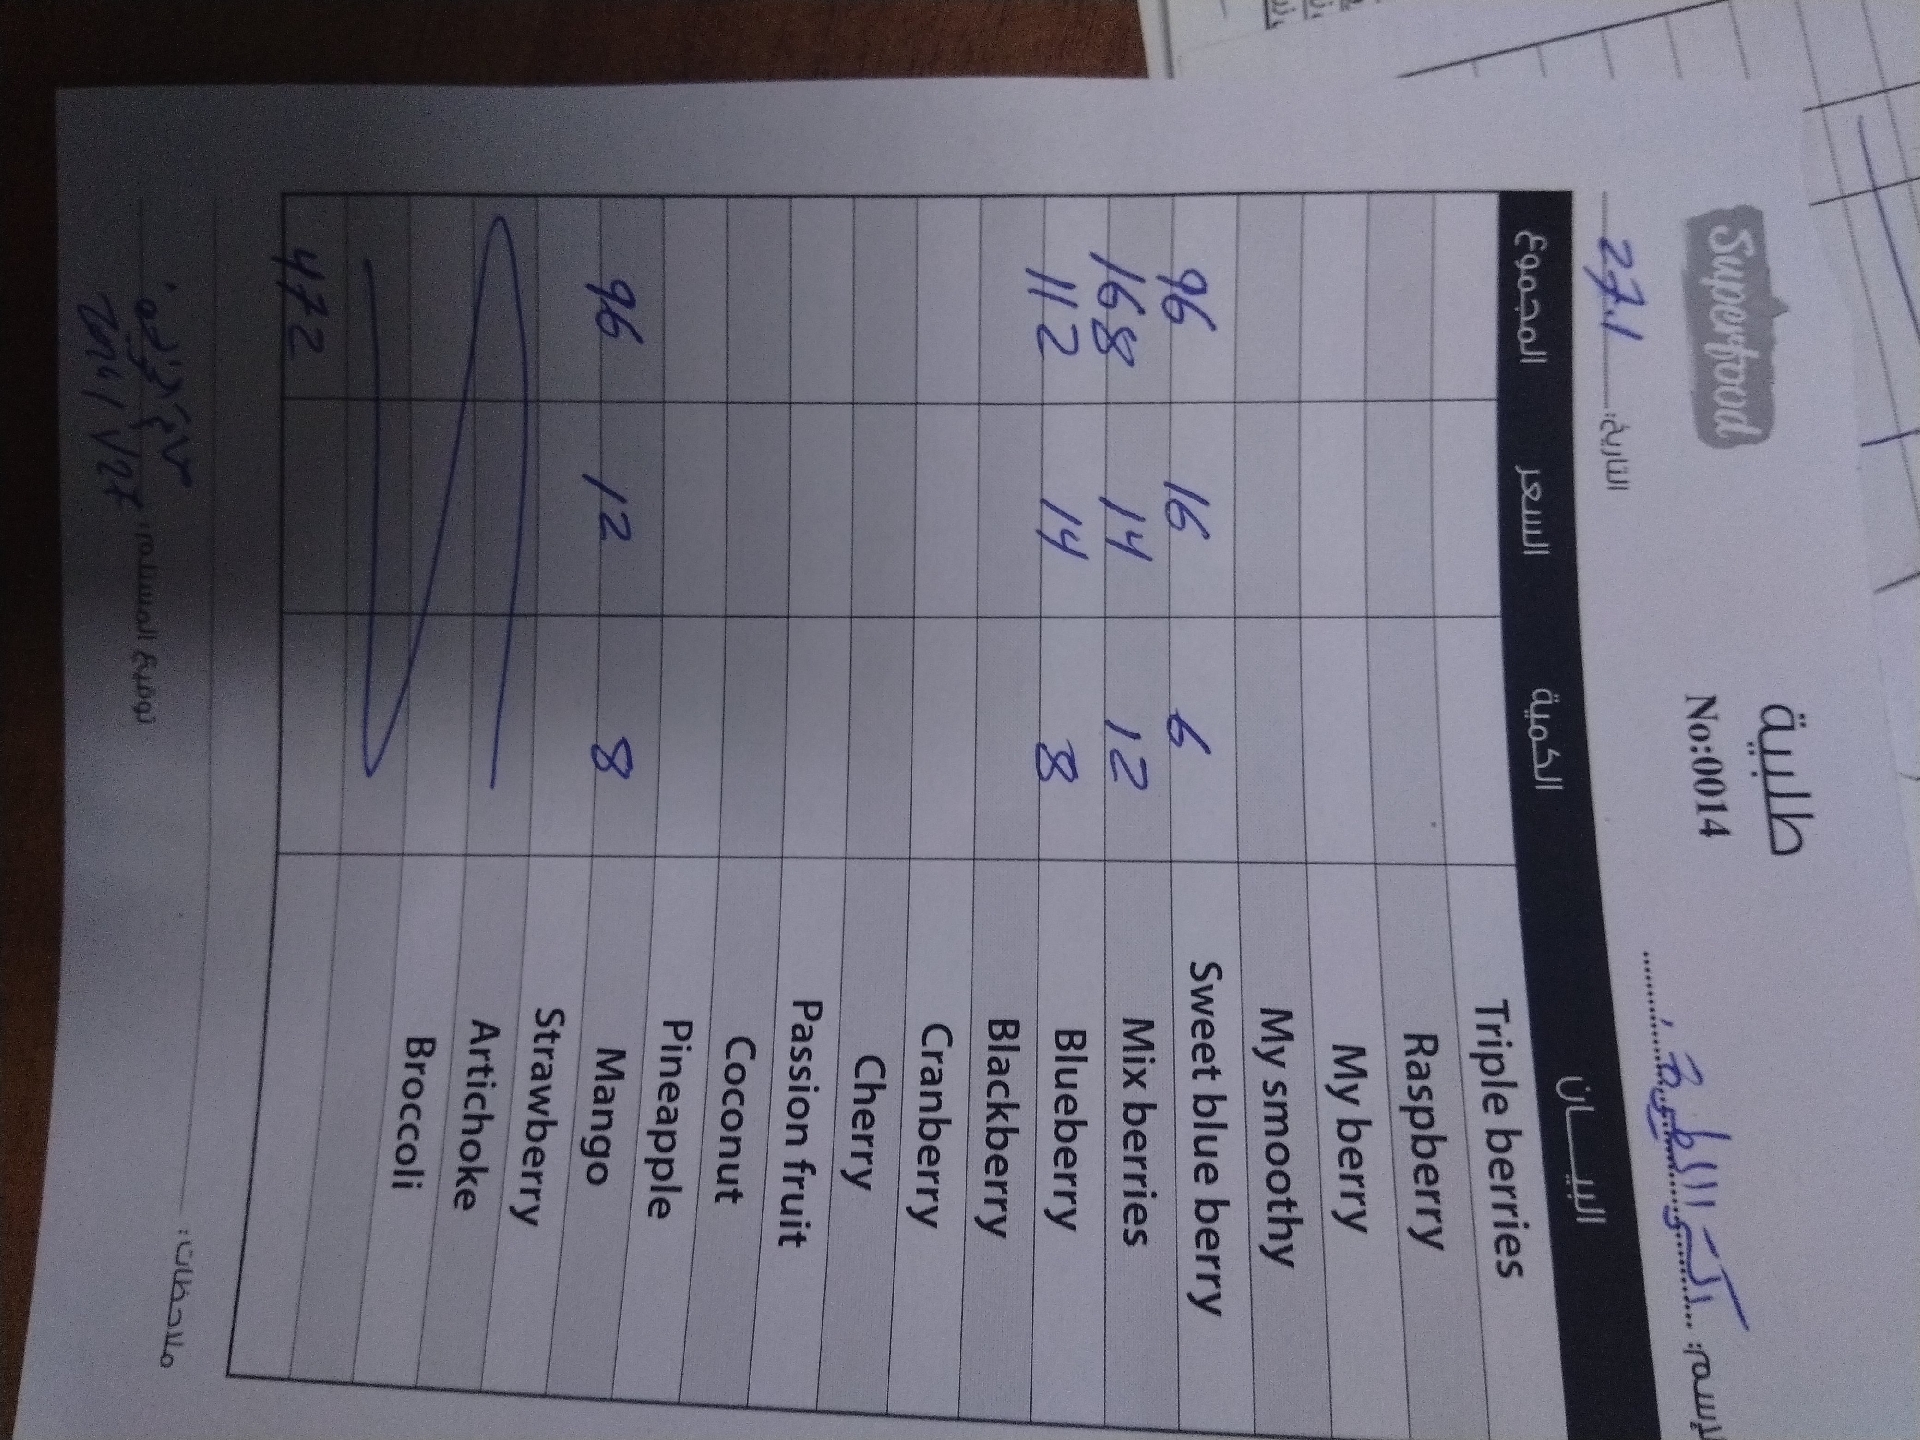 Superfood
طلبية
No:0014
الاسم:
التاريخ: 27.1
البيـــان الكمية السعر المجموع
Triple berries
Raspberry
My berry
My smoothy
Sweet blue berry 6 16 96
Mix berries 12 14 168
Blueberry 8 14 112
Blackberry
Cranberry
Cherry
Passion fruit
Coconut
Pineapple
Mango 8 12 96
Strawberry
Artichoke
Broccoli
472
ملاحظات:
توقيع المستلم: